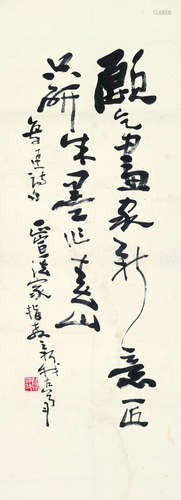 願乞畫家新意匠
只研朱墨作春山
魯迅詩句
法家指教